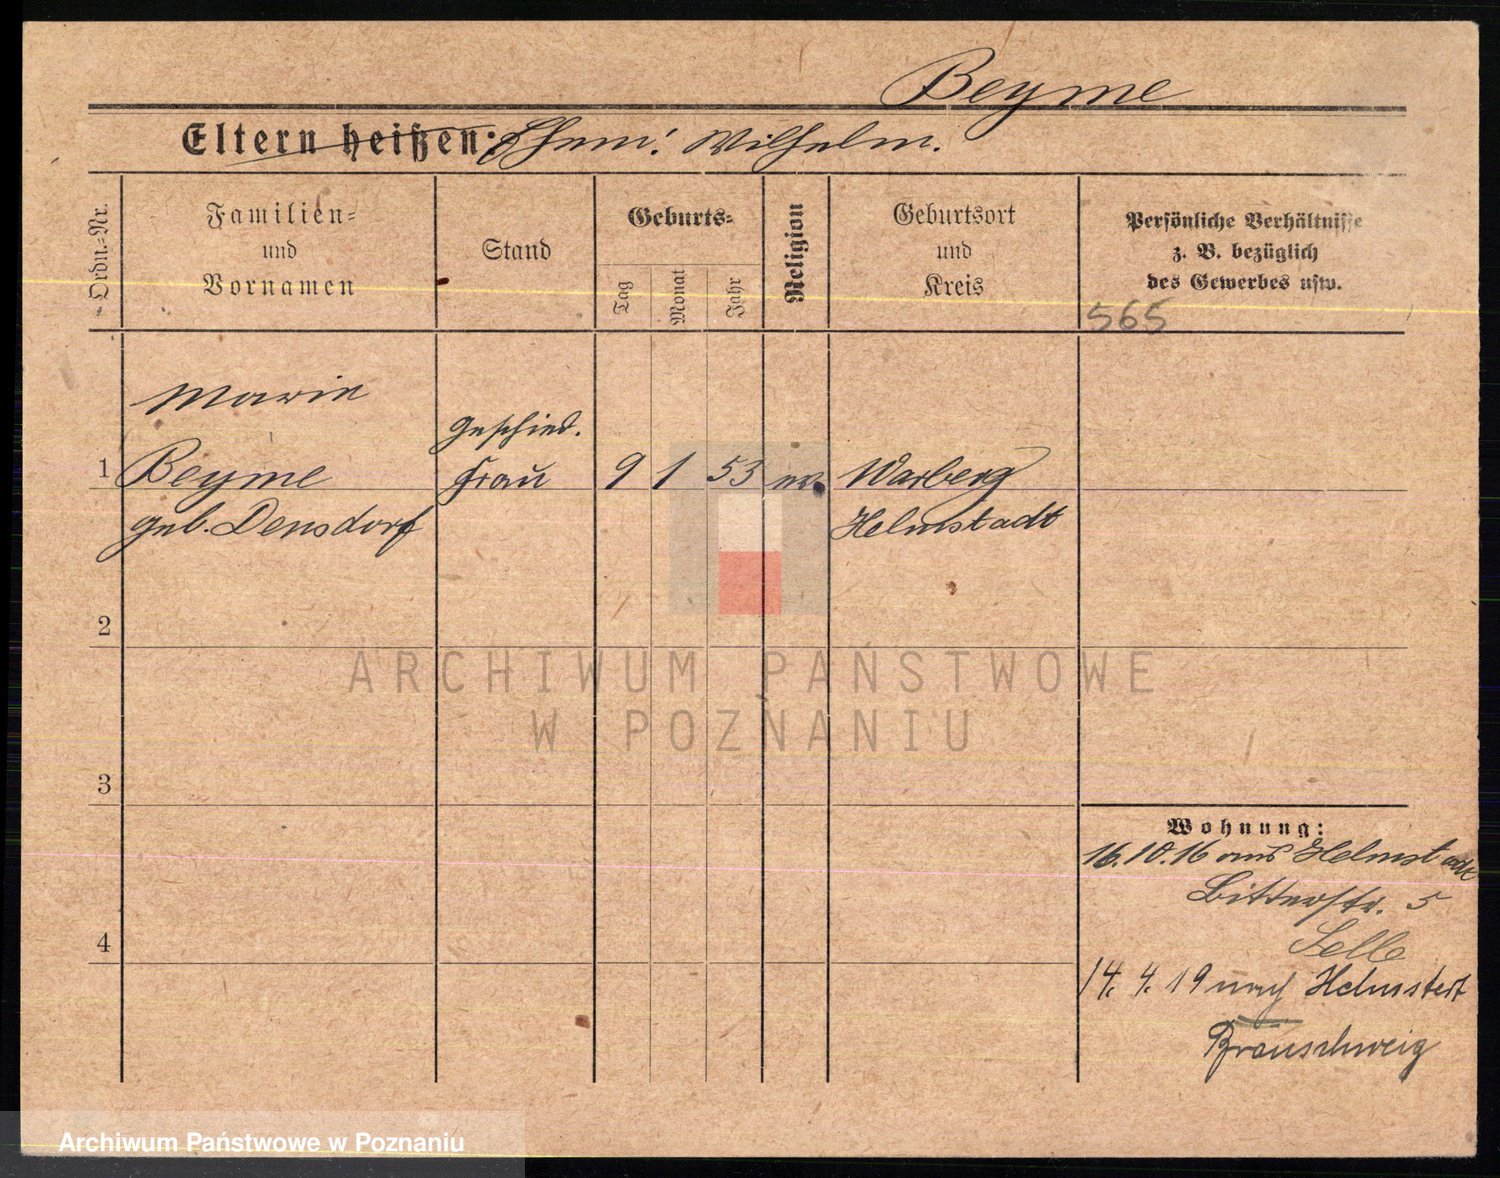 Beyme
Eltern heißen: Ehem: Wilhelm.
Ordn.-Nr.
Familien-
und
Vornamen
Stand
Geburts-
Tag
Monat
Jahr
Religion
Geburtsort
und
Kreis
Persönliche Verhältnisse
z. B. bezüglich
des Gewerbes usw.
565
Marie
geschied.
1 Beyme Frau 9 1 53 ev. Warberg
geb. Densdorf Helmstadt
2
ARCHIWUM PAŃSTWOWE
W POZNANIU
3
Wohnung:
16.10.16 aus Helmstadt
Bitterstr. 5
Selle
4
14. 4. 19 nach Helmstedt
Brauschweig
Archiwum Państwowe w Poznaniu